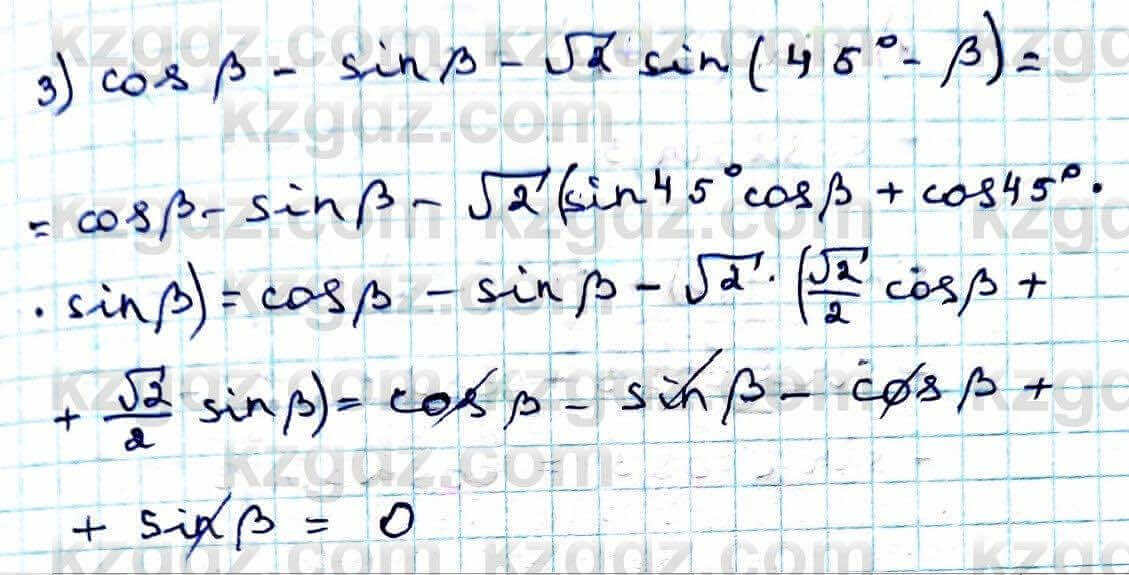 3) cos β - sin β - √2 sin (45° - β) =
= cos β - sin β - √2 (sin 45° cos β + cos 45° ·
· sin β) = cos β - sin β - √2 · (√2/2 cos β +
+ √2/2 sin β) = cos β - sin β - cos β +
+ sin β = 0
kzgdz.com